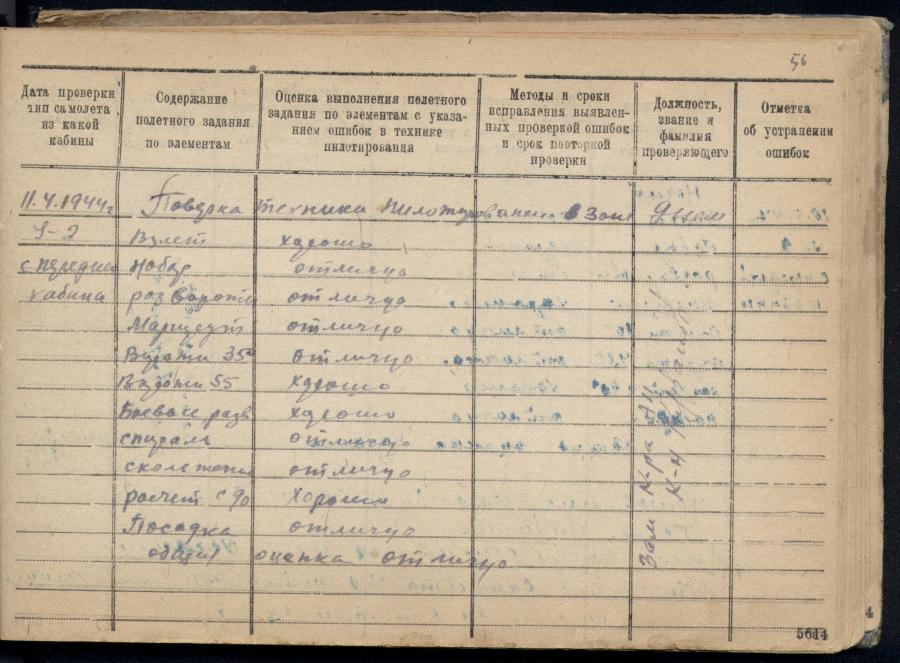 56
Дата проверки, тип самолета, из какой кабины
Содержание полетного задания по элементам
Оценка выполнения полетного задания по элементам с указанием ошибок в технике пилотирования
Методы и сроки исправления выявленных проверкой ошибок и срок повторной проверки
Должность, звание и фамилия проверяющего
Отметка об устранении ошибок
11.4.1944г Поверка техники пилотирования в зоне
У-2 Взлет хорошо
с передней Набор отлично
кабина развороты отлично
Маршрут отлично
Виражи 35° отлично
Виражи 55 хорошо
Боевые разв. хорошо
спираль отлично
скольжение отлично
расчет с 90 хорошо
Посадка отлично
общая оценка отлично
Зам К-ра
К-н
4
5614